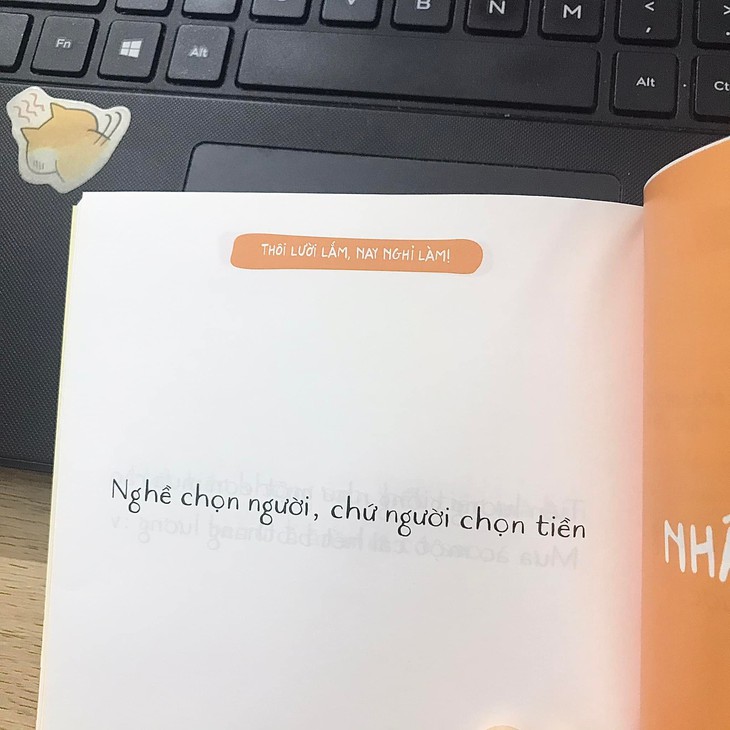 V B N M < ,
Fn Alt Alt Ct
THÔI LƯỜI LẮM, NAY NGHỈ LÀM!
Nghề chọn người, chứ người chọn tiền